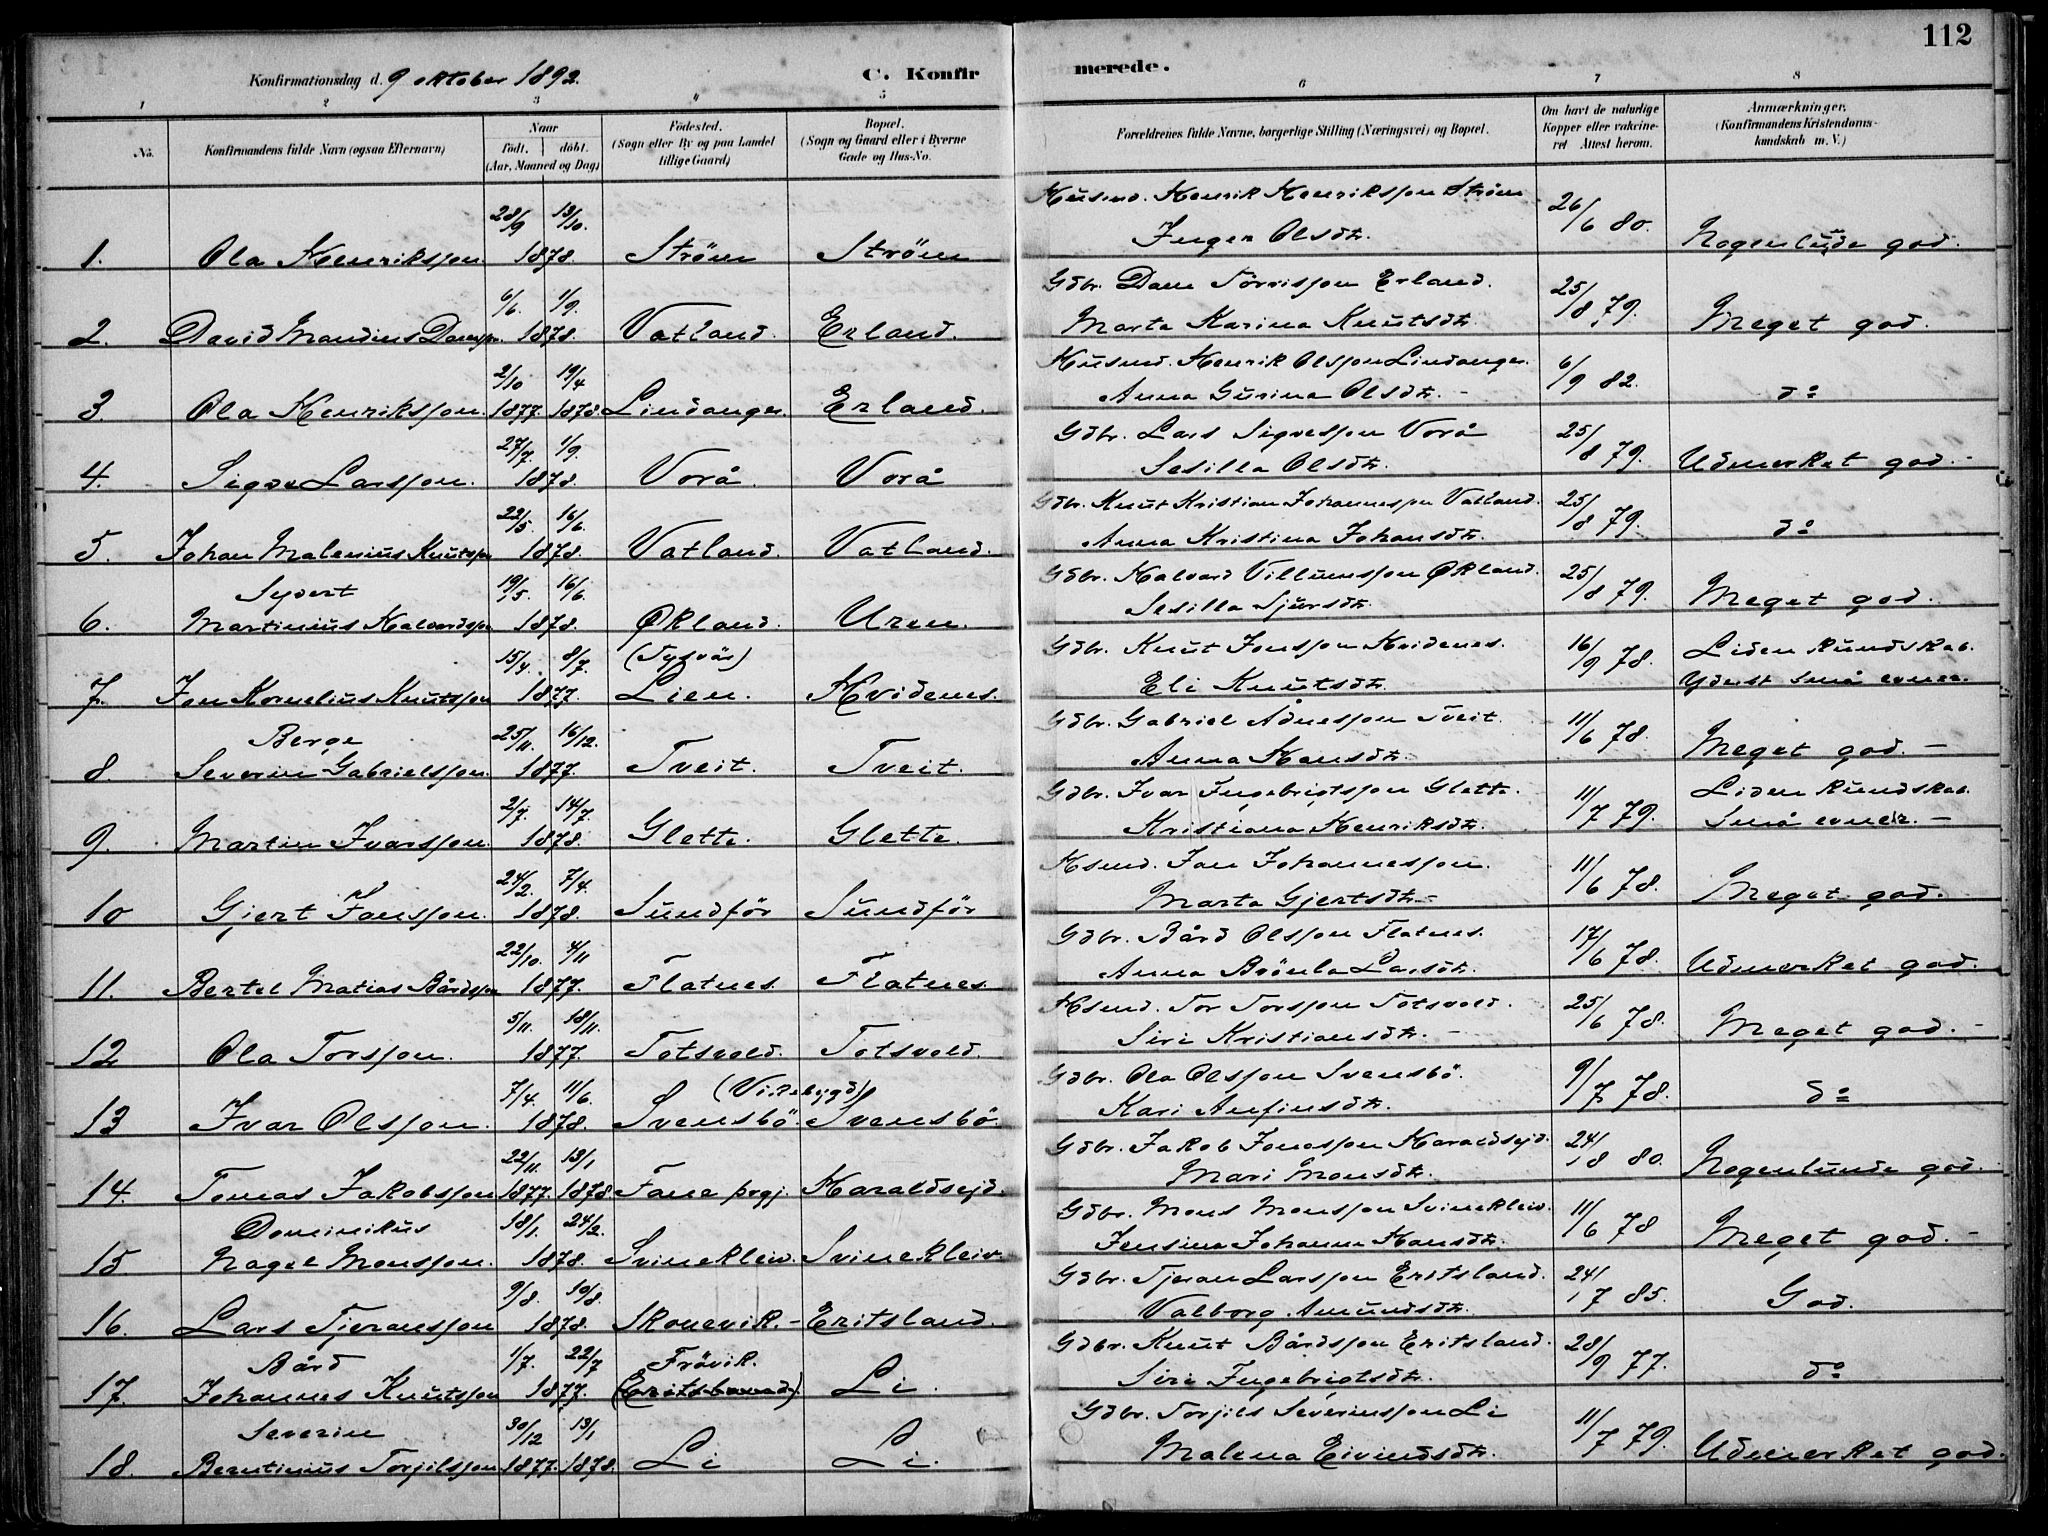 112
Konfirmationsdag d. 9 oktober 1892. C. Konfir merede.
1 2 3 " 5 6 7 8
No. Konfirmandens fulde Navn (ogsaa Efternavn) Naar født. døbt. (Aar, Maaned og Dag) Fødested. (Sogn eller By og paa Landet tillige Gaard) Bopæl. (Sogn og Gaard eller i Byerne Gade og Hus-No. Forældrenes fulde Navne, borgerlige Stilling (Næringsvei) og Bopæl. Om havt de naturlige Kopper eller vakcineret Attest herom. Anmærkninger, (Konfirmandens Kristendomskundskab m. V.)
28/9 13/10. Husmd. Henrik Henriksson Ström 26/6 80.
1. Ola Henriksson. 1878. Ström Ström Inger Olsdtr. Nogenlunde god.
6/6. 1/9. Gdbr. Dane Törrisson Erland. 25/8 79.
2. David Mandius Danesson. 1878. Vatland. Erland. Marta Karina Knutsdtr. Meget god.
2/10 19/4 Husmd. Henrik Olsson Lindanger. 6/9 82.
3. Ola Henriksson. 1877. 1878 Lindanger. Erland. Anna Gurina Olsdtr. do
27/7. 1/9. Gdbr. Lars Sigvesson Vorå 25/8 79.
4. Sigve Larsson. 1878. Vorå. Vorå Sesilla Olsdtr. Udmerket god.
22/5. 16/6. Gdbr. Knut Kristian Johannessen Vatland. 25/8 79.
5. Johan Malenius Knutsson 1878. Vatland. Vatland. Anna Kristina Johansdtr. do
Syvert 19/5. 16/6. Gdbr. Halvard Villumsson Økland. 25/8 79.
6. Martinius Halvardsson 1878. Økland. Uren. Sesilla Sjursdtr. Meget god.
15/4. 8/7. (Tysvær) Gdbr. Knut Jonsson Hvidenes. 16/9 78. Liden kundskab.
7. Jon Kornelius Knutsson 1877. Lien. Hvidenes. Eli Knutsdtr. Yderst små evner.
Berge 25/11. 16/12. Gdbr. Gabriel Ådnesson Tveit. 11/6 78.
8 Severin Gabrielsson. 1877. Tveit. Tveit. Anna Hansdtr. Meget god. –
2/7. 14/7. Gdbr. Ivar Ingebrigtsson Glette. 11/7 79. Liden kundskab.
9. Martin Ivarsson. 1878. Glette. Glette. Kristiana Henriksdtr. Små evner. –
24/2. 7/4. Hsmd. Jan Johannesson. 11/6 78.
10 Gjert Jansson. 1878. Sundför Sundför Marta Gjertsdtr. – Meget god.
22/10. 4/11 Gdbr. Bård Olsson Flatnes. 17/6 78.
11. Bertel Matias Bårdsson 1877. Flatnes. Flatnes. Anna Brönla Larsdtr. Udmerket god.
5/11. 18/11. Hsmd. Tor Torsson Totsvold. 25/6 78.
12 Ola Torsson. 1877. Totsvold. Totsvold. Siri Kristiansdtr. – Meget god. –
7/4. 11/6. (Vikebygd) Gdbr. Ola Olsson Svensbö. 9/7 78.
13 Ivar Olsson. 1878. Svensbö. Svensbö. Kari Anfinsdtr. do
22/11. 13/1 Gdbr. Jakob Jonasson Haraldsejd. 24/8 80.
14. Tomas Jakobsson 1877. 1878 Fane prgj. Haraldsejd. Mari Monsdtr. Nogenlunde god.
Dominikus 18/1. 24/2. Gdbr. Mons Monsson Svinekleiv. 11/6 78
15. Nagel Monsson. 1878. Svinekleiv. Svinekleiv. Jensina Johanna Hansdtr. Meget god. –
9/8. 10/8. Gdbr. Tjeran Larsson Eritsland. 24/7 85.
16. Lars Tjeransson 1878. Skonevik. – Eritsland. Valborg Amundsdtr. God.
Bård 1/7. 22/7 Frövik. Gdbr. Knut Bårdsson Eritsland. 28/9 77.
17. Johannes Knutsson 1877. (Eritsland) Li. Siri Ingebrigtsdtr. do
Severin 30/12 13/1 Gdbr. Torjils Severinsson Li 11/7 79.
18. Berntinius Torjilsson 1877. 1878. Li Li. Malena Eivindsdtr. Udmerket god.